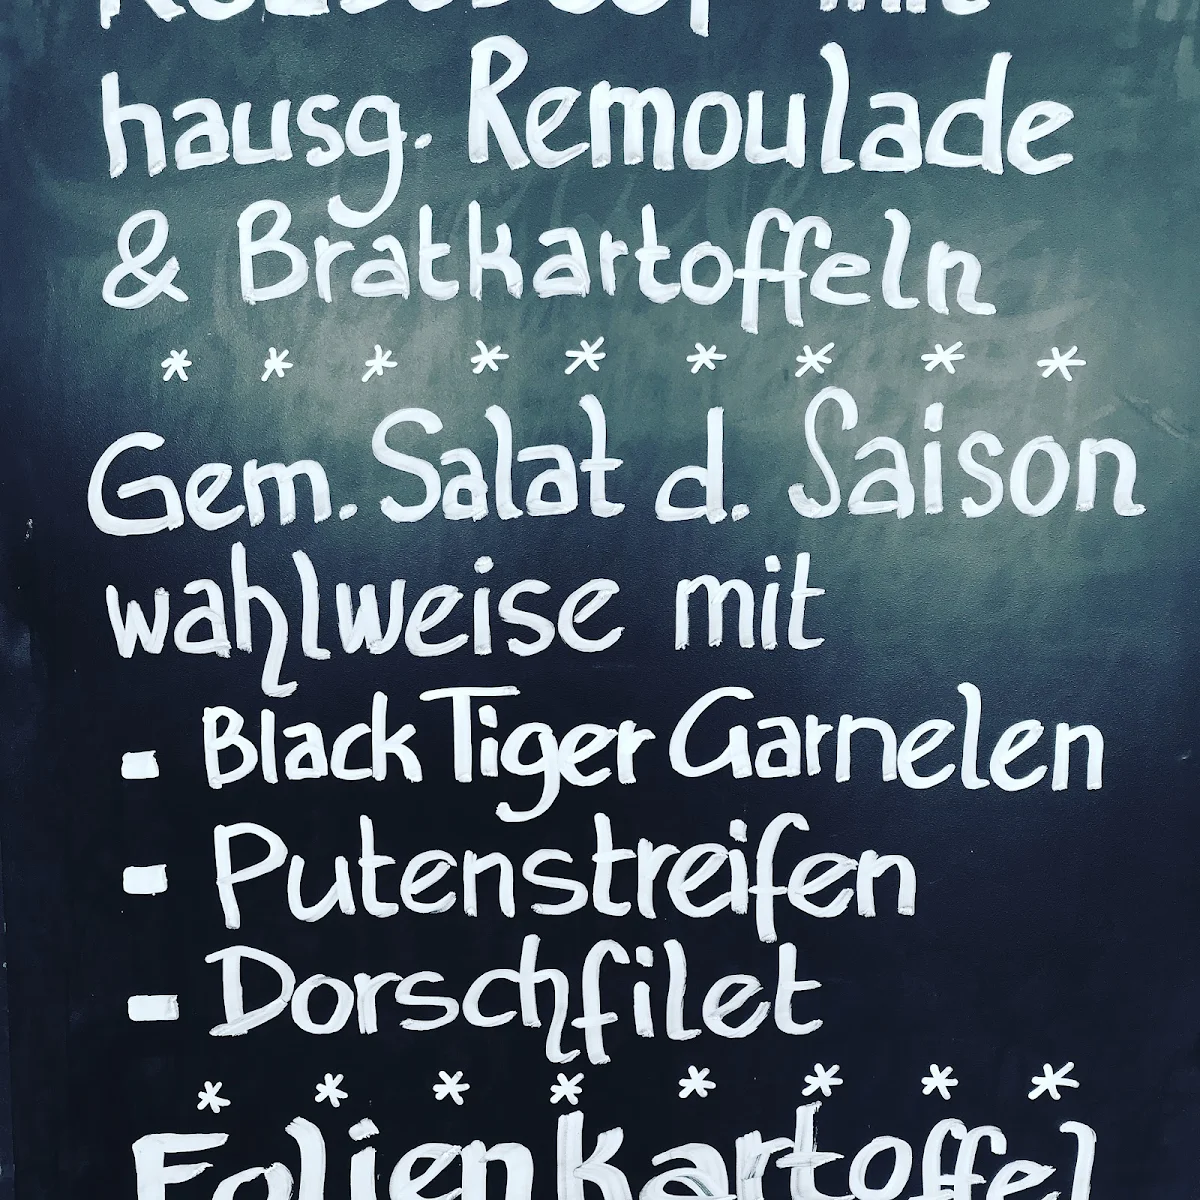 Roastbeef mit
hausg. Remoulade
& Bratkartoffeln
* * * * * * * * *
Gem. Salat d. Saison
wahlweise mit
- Black Tiger Garnelen
- Putenstreifen
- Dorschfilet
* * * * * * * *
Folienkartoffel